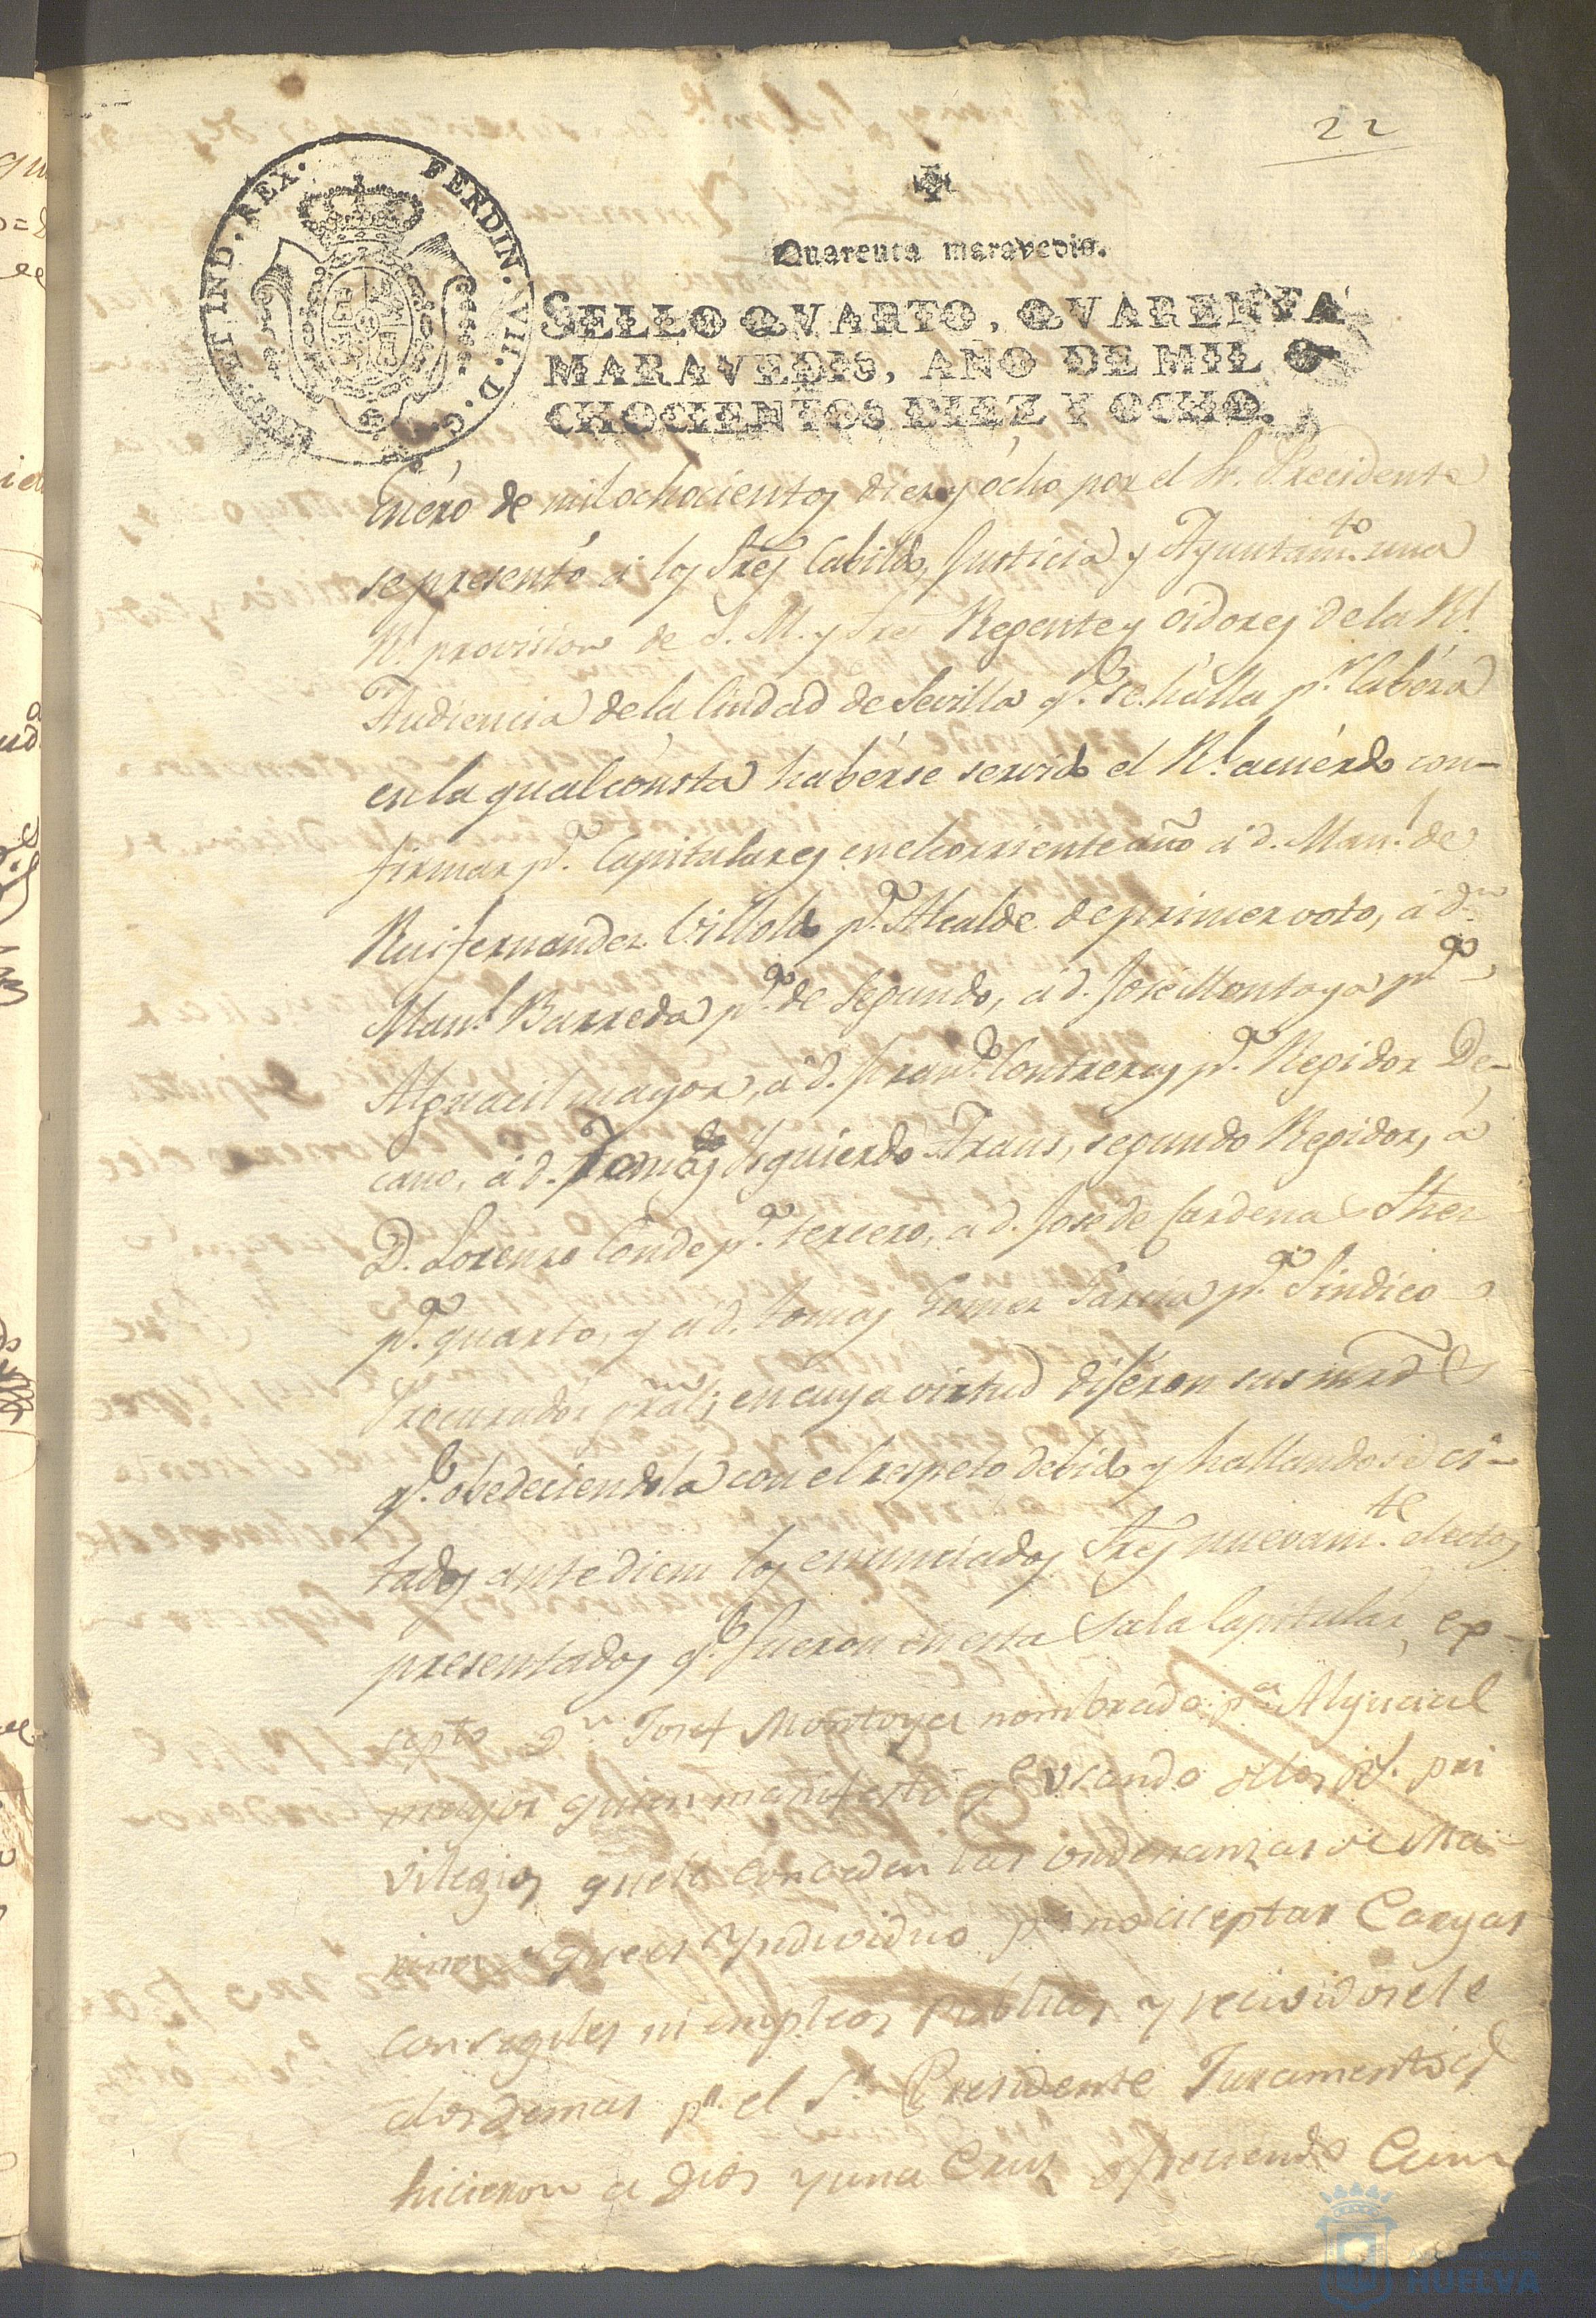 22
Quarenta maravedis.
SELLO QVARTO, QVARENTA
MARAVEDIS, AÑO DE MIL O
CHOCIENTOS DIEZ Y OCHO.
HISP. ET IND. REX. FERDIN. VII. D. G.
Enero de mil ochocientos diez y ócho por el Sr. Precidente
se presentó á los Sres Cabildo, Justicia y Ayuntamto. una
Rl. provision de S. M. y Sres Regente y Oidores de la Rl.
Audiencia de la Ciudad de Sevilla qe. se halla pr. Cabéza
en la qual cónsta habérse servido el Rl. acuérdo con-
firmar pa. Capitulares en el corriente año á d. Manl. de
Ruifernandez Villoldo pa. Alcalde de primer voto, á dn.
Manl. Barreda pa. de segundo, á d. José Montoya pa.
Alguacil mayor, á d. Franco. Contreras pa. Regidor De-
cano, á d. Tomás Ysquierdo Frans, segundo Regidor, á
D. Lorenzo Conde pa. tercero, a d. José de Cardena
pa. quarto, y á d. tomas Gomez García pa. Sindico
Procurador gral; en cuya virtud dijéron sus mrds
qe. obedeciendola con el respeto debido y hallandose ci-
tados ante diem los enunciados Sres nuevamte. electos
presentados qe. fueron en esta Sala Capitular, ex-
septo Dn. Josef Montoya nombrado pa. Alguacil
mayor quien manifestó qe usando de los pri
vilegios que le conceden las ordenanzas de Ma-
rina de que es Yndividuo pa. no aceptar Cargas
consegiles ni empleos publicos y recividosele
a los demas pr. el Sr. Presidente Juramento qe
hicieron a Dios y una Cruz ofreciendo Cum
HUELVA